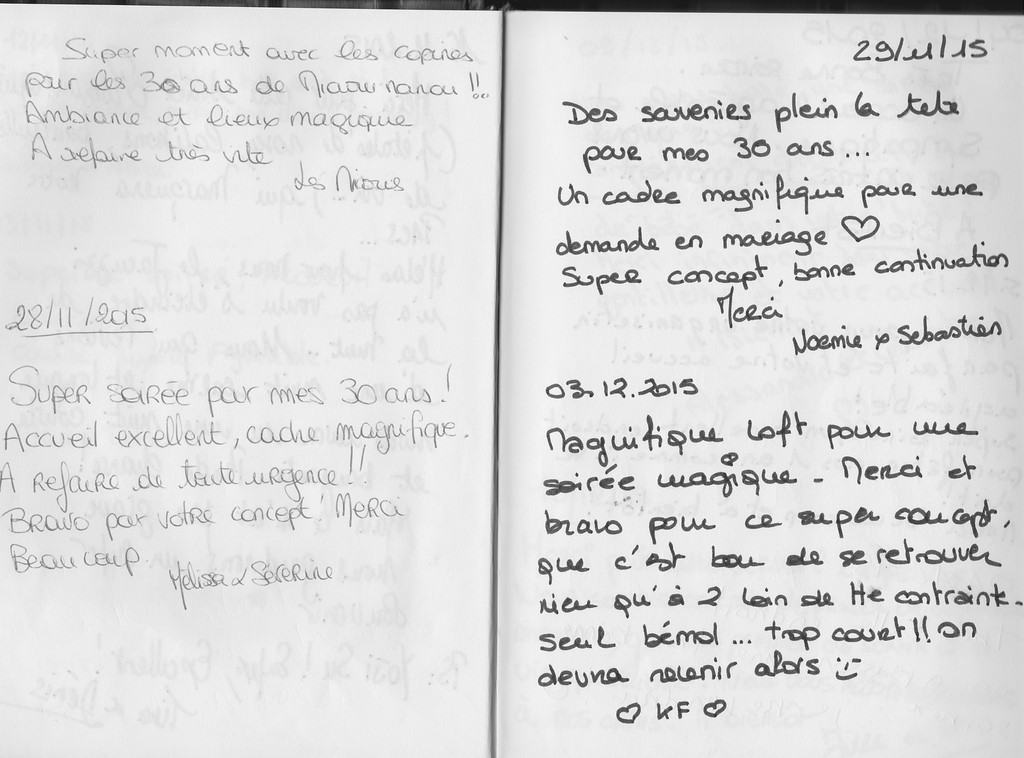 Super moment avec les copines
pour les 30 ans de Miaou nanou !!..
Ambiance et lieux magique
A refaire très vite
Les Mious
28/11/2015
Super soirée pour mes 30 ans !
Accueil excellent, cadre magnifique.
A Refaire de toute urgence !!
Bravo par votre concept ! Merci
Beaucoup.
Mélissa & Séverine
29/11/15
Des souvenirs plein la tete
pour mes 30 ans...
Un cadre magnifique pour une
demande en mariage ♡
Super concept, bonne continuation
Merci
Noemie & Sebastien
03.12.2015
Magnifique Loft pour une
soirée magique - Merci et
bravo pour ce super concept,
que c'est bon de se retrouver
rien qu'à 2 loin de tte contrainte.
Seul bémol... trop court !! On
devra revenir alors :-)
♡ KF ♡